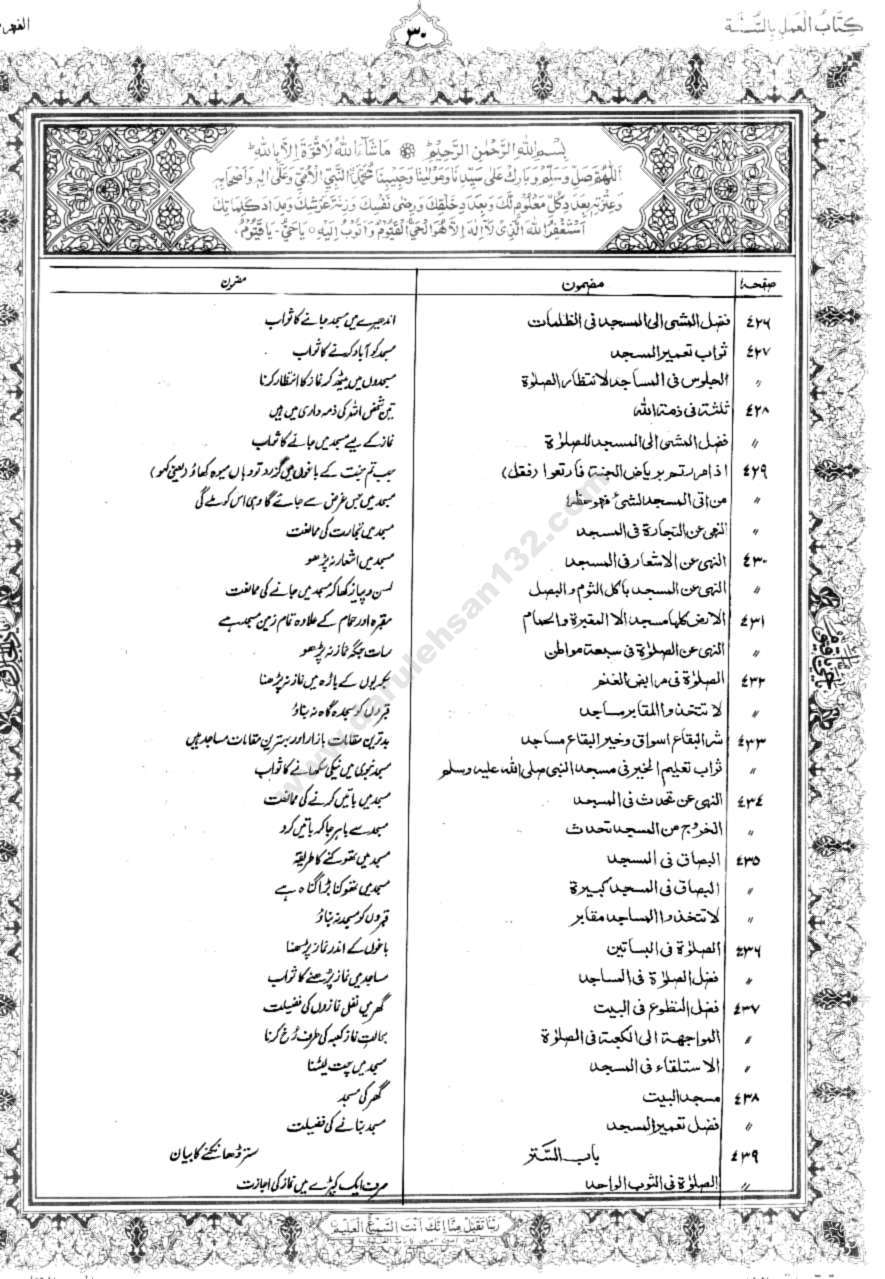 كِتَابُ الْعَمَلِ بِالسُّنَّة ٣٠
بِسْمِ اللهِ الرَّحْمٰنِ الرَّحِيْمِ مَا شَآءَ اللهُ لَا قُوَّةَ اِلَّا بِاللهِ
اَللّٰهُمَّ صَلِّ وَسَلِّمْ وَبَارِكْ عَلٰى سَيِّدِنَا وَمَوْلٰنَا وَحَبِيْبِنَا مُحَمَّدِ النَّبِيِّ الْاُمِّيِّ وَعَلٰى اٰلِهٖ وَاَصْحَابِهٖ
وَعِتْرَتِهٖ بِعَدَدِ كُلِّ مَعْلُوْمٍ لَّكَ وَبِعَدَدِ خَلْقِكَ وَرِضٰى نَفْسِكَ وَزِنَةَ عَرْشِكَ وَمِدَادَ كَلِمَاتِكَ
اَسْتَغْفِرُ اللهَ الَّذِىْ لَآ اِلٰهَ اِلَّا هُوَ الْحَىُّ الْقَيُّوْمُ وَاَتُوْبُ اِلَيْهِ يَا حَىُّ يَا قَيُّوْمُ
صفحہ مضمون مضمون
٤٢٦ فضل المشى الى المسجد فى الظلمات اندھیرے میں مسجد جانے کا ثواب
٤٢٧ ثواب تعمير المسجد مسجد کو آباد کرنے کا ثواب
〃 الجلوس فى المساجد لانتظار الصلوٰة مسجدوں میں بیٹھ کر نماز کا انتظار کرنا
٤٢٨ ثلثة فى ذمة الله تین شخص اللہ کی ذمہ داری میں ہیں
〃 فضل المشى الى المسجد للصلوٰة نماز کے لیے مسجد میں جانے کا ثواب
٤٢٩ اذا مررتم برياض الجنة فارتعوا جب تم جنت کے باغوں میں گزرو تو وہاں میوہ کھاؤ (یعنی کہو)
〃 من اتى المسجد لشئ فهو حظه مسجد میں جس غرض سے جائے گا وہی اس کو ملے گی
〃 النهى عن التجارة فى المسجد مسجد میں تجارت کی ممانعت
٤٣٠ النهى عن الاشعار فى المسجد مسجد میں اشعار نہ پڑھو
〃 النهى عن المسجد باكل الثوم والبصل لہسن و پیاز کھا کر مسجد میں جانے کی ممانعت
٤٣١ الارض كلها مسجد الا المقبرة والحمام مقبرہ اور حمام کے علاوہ تمام زمین مسجد ہے
〃 النهى عن الصلوٰة فى سبعة مواطن سات جگہ نماز نہ پڑھو
٤٣٢ الصلوٰة فى مرابض الغنم بکریوں کے باڑہ میں نماز پڑھنا
〃 لا تتخذوا المقابر مساجد قبروں کو سجدہ گاہ نہ بناؤ
٤٣٣ شر البقاع اسواق وخير البقاع مساجد بدترین مقامات بازار اور بہترین مقامات مساجد ہیں
〃 ثواب تعليم الخير فى مسجد النبى صلى الله عليه وسلم مسجد نبوی میں نیکی سکھانے کا ثواب
٤٣٤ النهى عن تحدث فى المسجد مسجد میں باتیں کرنے کی ممانعت
〃 الخروج من المسجد تحدث مسجد سے باہر جا کر باتیں کرو
٤٣٥ البصاق فى المسجد مسجد میں تھوکنے کا طریقہ
〃 البصاق فى المسجد كبيرة مسجد میں تھوکنا بڑا گناہ ہے
〃 لا تتخذوا المساجد مقابر قبروں کو مسجد نہ بناؤ
٤٣٦ الصلوٰة فى البساتين باغوں کے اندر نماز پڑھنا
〃 فضل الصلوٰة فى المساجد مساجد میں نماز پڑھنے کا ثواب
٤٣٧ فضل التطوع فى البيت گھر میں نفل نمازوں کی فضیلت
〃 المواجهة الى الكعبة فى الصلوٰة بحالتِ نماز کعبہ کی طرف رُخ کرنا
〃 الاستلقاء فى المسجد مسجد میں چت لیٹنا
٤٣٨ مسجد البيت گھر کی مسجد
〃 فضل تعمير المسجد مسجد بنانے کی فضیلت
٤٣٩ باب السَّتر ستر ڈھانکنے کا بیان
〃 الصلوٰة فى الثوب الواحد صرف ایک کپڑے میں نماز کی اجازت
رَبَّنَا تَقَبَّلْ مِنَّا اِنَّكَ اَنْتَ السَّمِيْعُ الْعَلِيْمُ
www.darulehsan132.com